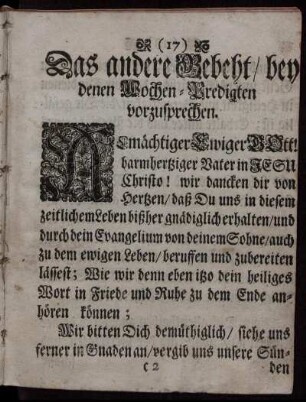 (17)
Das andere Gebeht / bey
denen Wochen-Predigten
vorzusprechen.
Allmächtiger Ewiger GOtt!
barmhertziger Vater in JESU
Christo! wir dancken dir von
Hertzen / daß Du uns in diesem
zeitlichem Leben bißher gnädiglich erhalten / und
durch dein Evangelium von deinem Sohne / auch
zu dem ewigen Leben / beruffen und zubereiten
lässest; Wie wir denn eben itzo dein heiliges
Wort in Friede und Ruhe zu dem Ende an-
hören können;
Wir bitten Dich demüthiglich / siehe uns
ferner in Gnaden an / vergib uns unsere Sün-
C 2 den